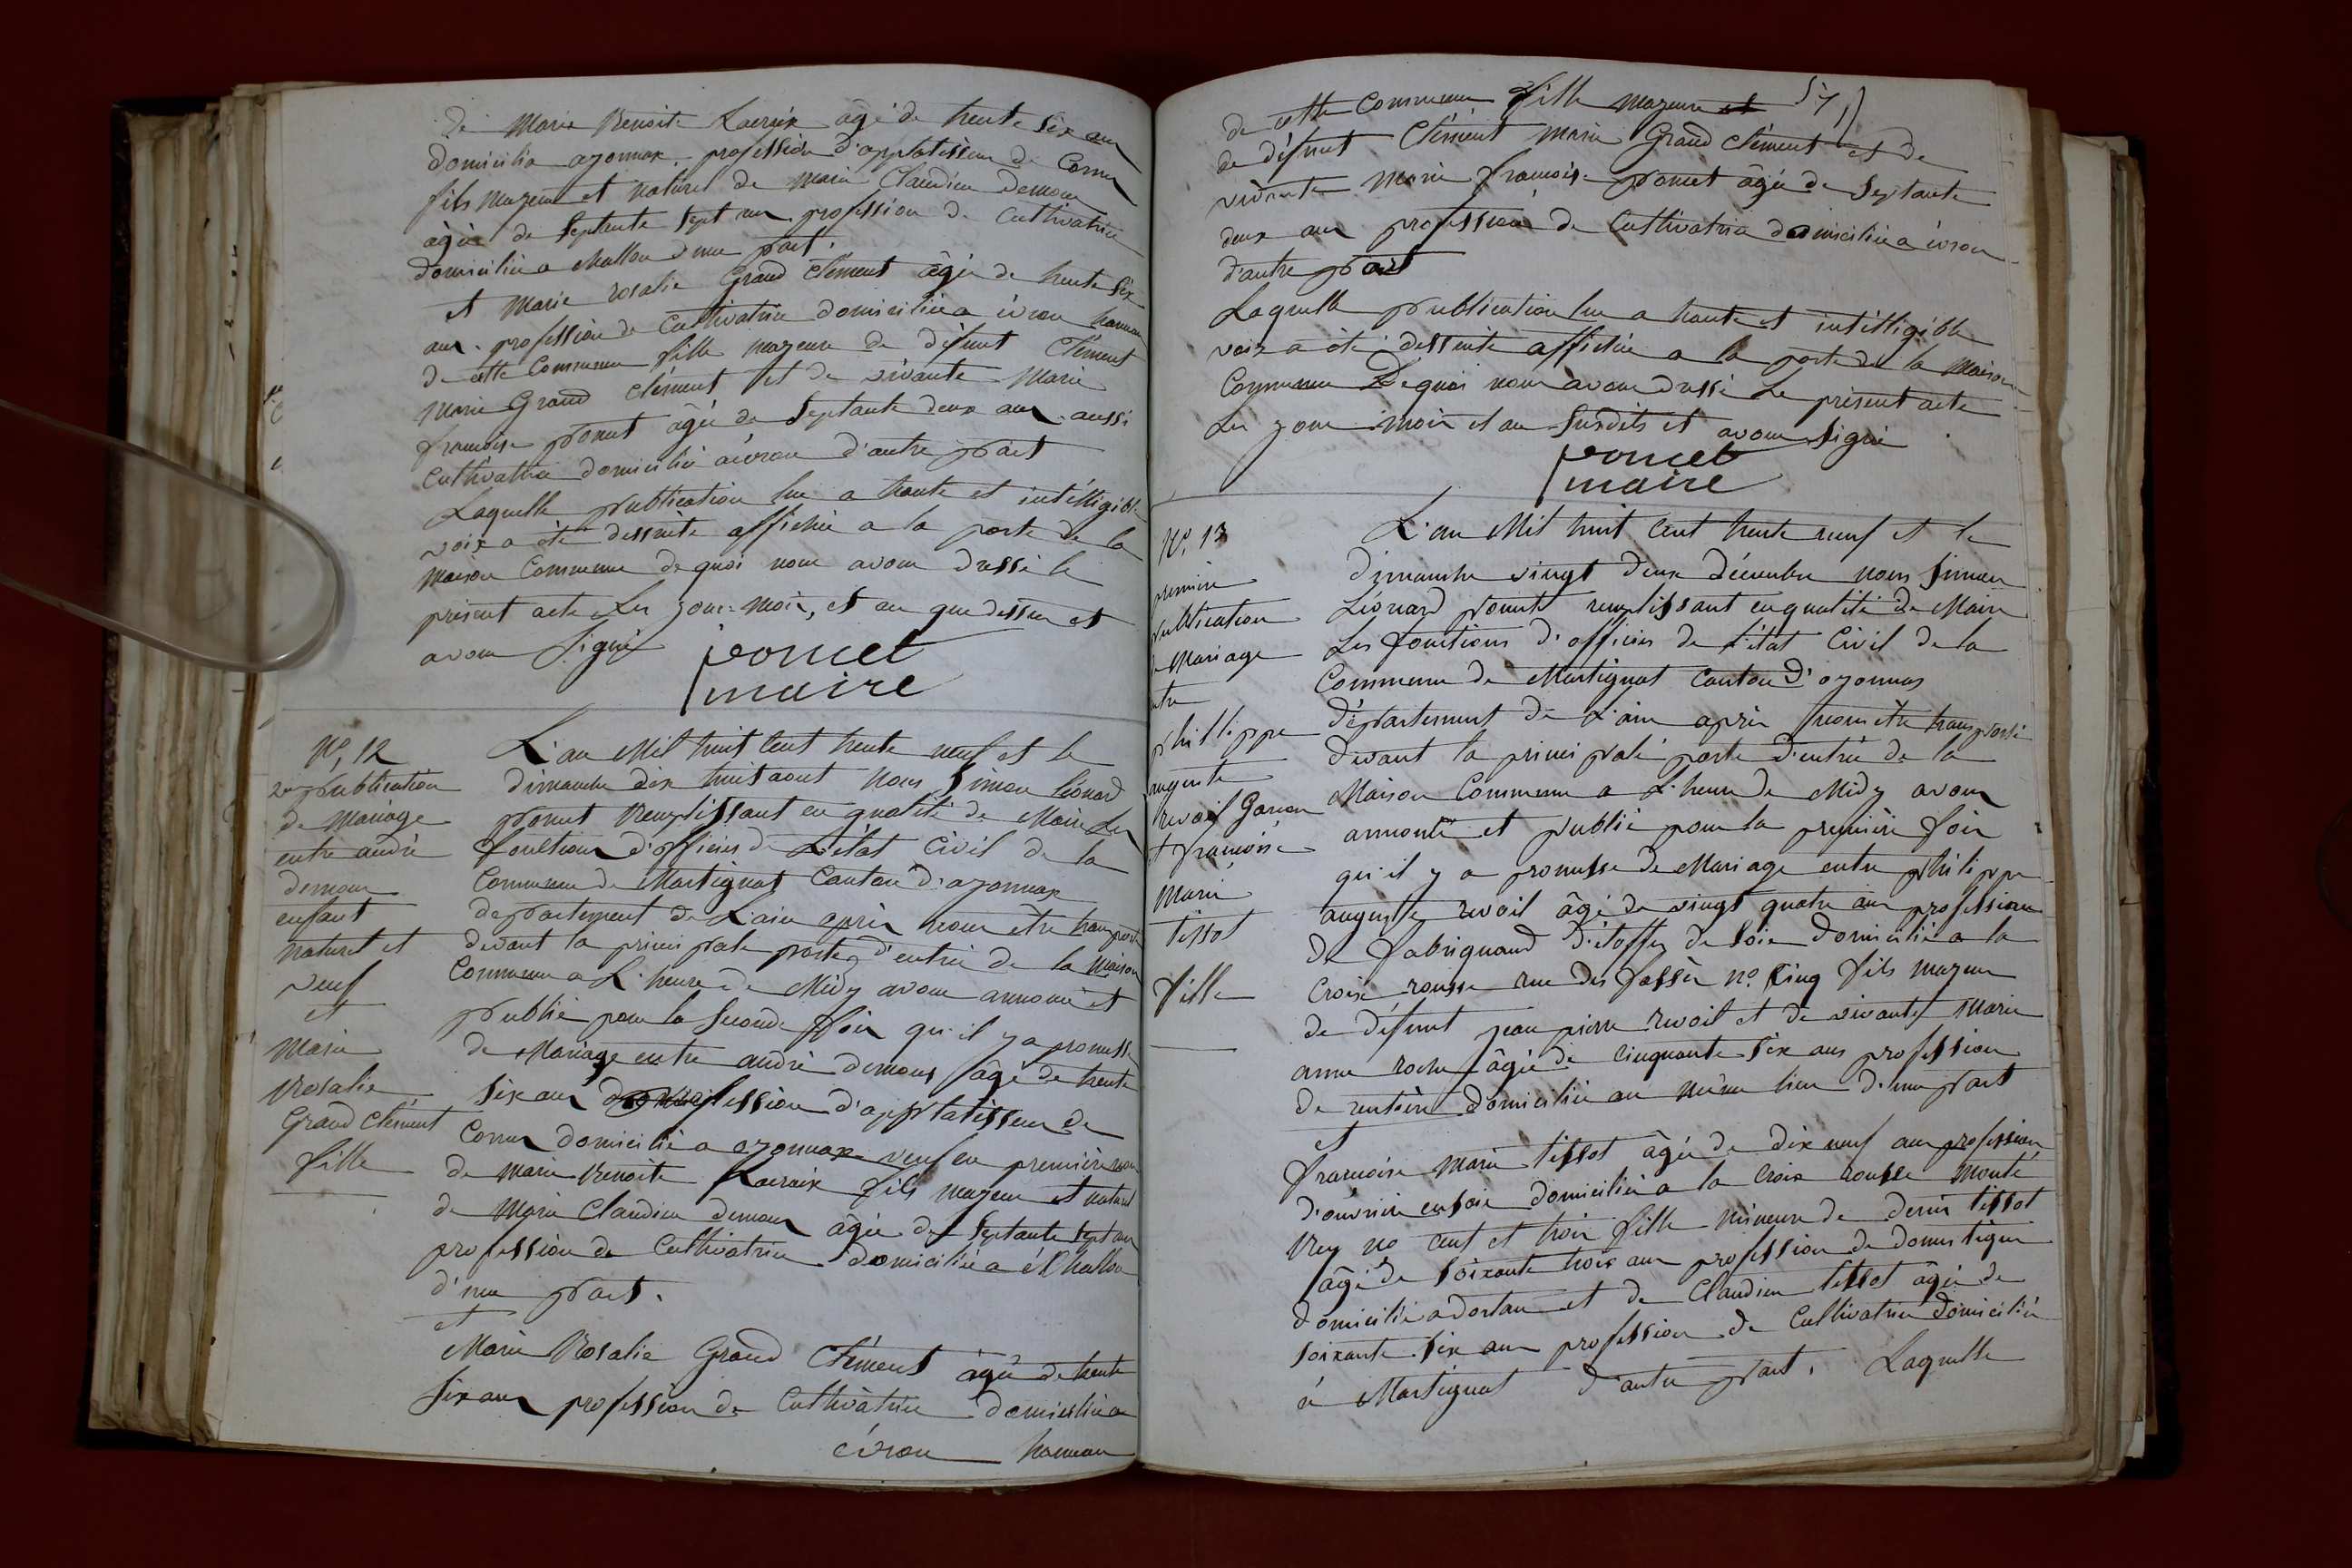 de Marie Benoite Lacroix âgé de trente six ans
domicilié a oyonnax, profession d'applatisseur de Corne
fils mageur et naturel de marie Claudine demour
âgée de septente sept ans profession de Cultivatrice
domiciliée a challou d'une part.
et Marie rosalie Grand Clément âgée de trente six
ans. profession de Cultivatrice domiciliée a évron hameau
de cette Commune fille mageure de défunt Clément
Marie Grand Clément et de vivante Marie
francoise poncet âgée de Septante deux ans aussi
Cultivatrice domicilié a évron d'autre part
Laquelle publication lue a haute et intélligible
voix a été dessuite affichée a la porte de la
maison Commune de quoi nous avons dressé le
présent acte Les jour mois, et an que dessus et
avons Signé
poncet
maire
N°, 12
2e publication
de Mariage
entre andré
demour
enfant
naturel et
veuf
et
Marie
Rosalie
Grand Clément
fille
L'an Mil huit Cent trente neuf et le
dimanche dix huit aout Nous Simon léonard
poncet Remplissant en qualité de Maire Les
fonctions d'officier de L'état Civil de la
Commune de Martignat Canton d'oyonnax
département de L'ain après nous être transporté
devant la principale porte d'entrée de la Maison
Commune a L'heure de Midy avons annoncé et
publié pour la Seconde fois qu'il y a promesse
de Mariage entre andré demour âgé de trente
six ans profession d'applatisseur de
Corne domicilié a oyonnax veuf en première noce
de marie Benoite Lacroix fils mageur et naturel
de Marie Claudine demour âgée de Septante sept ans
profession de Cultivatrice domiciliée a challou
d'une part.
et
Marie Rosalie Grand Clément âgée de trente
six ans profession de Cultivatrice domiciliée a
évron hameau
57
de cette Commune fille mageure et
de défunt Clément Marie Grand Clément et de
vivante Marie francoise poncet âgée de Septante
deux ans profession de Cultivatrice domiciliée a évron
d'autre part
Laquelle publication lue a haute et intélligible
voix a été dessuite affichée a la porte de la Maison
Commune De quoi nous avons dressé Le présent acte
Les jour mois et an Susdits et avons Signé
poncet
maire
N°. 13
première
publication
de Mariage
entre
philippe
auguste
revoil Garcon
et francoise
Marie
tissot
fille
L'an Mil huit Cent trente neuf et le
dimanche vingt deux décembre nous Simon
Léonard poncet remplissant en qualité de Maire
Les fonctions d'officier de L'état Civil de la
Commune de Martignat Canton d'oyonnax
département de L'ain après nous être transporté
devant la principale porte d'entrée de la
Maison Commune a L'heure de Midy avons
annoncé et publié pour la première fois
qu'il y a promesse de Mariage entre philippe
auguste revoil âgé de vingt quatre ans profession
de fabriquand d'étoffes de Soie domicilié a la
Croix rousse rue des fossés n° Cinq fils mageur
de défunt jean pierre revoil et de vivante Marie
anne roche âgée de Cinquante Six ans profession
de rentière domicilié au même lieu d'une part
et
francoise Marie tissot âgée de dix neuf ans profession
d'ouvrière en soie domiciliée a la Croix rousse Monté
Rey n° cent et trois fille Mineure de denis tissot
âgé de Soixante trois ans profession de domestique
domicilié a dortan et de Claudine tissot âgée de
soixante Six ans profession de Cultivatrice domiciliée
à Martignat d'autre part. Laquelle